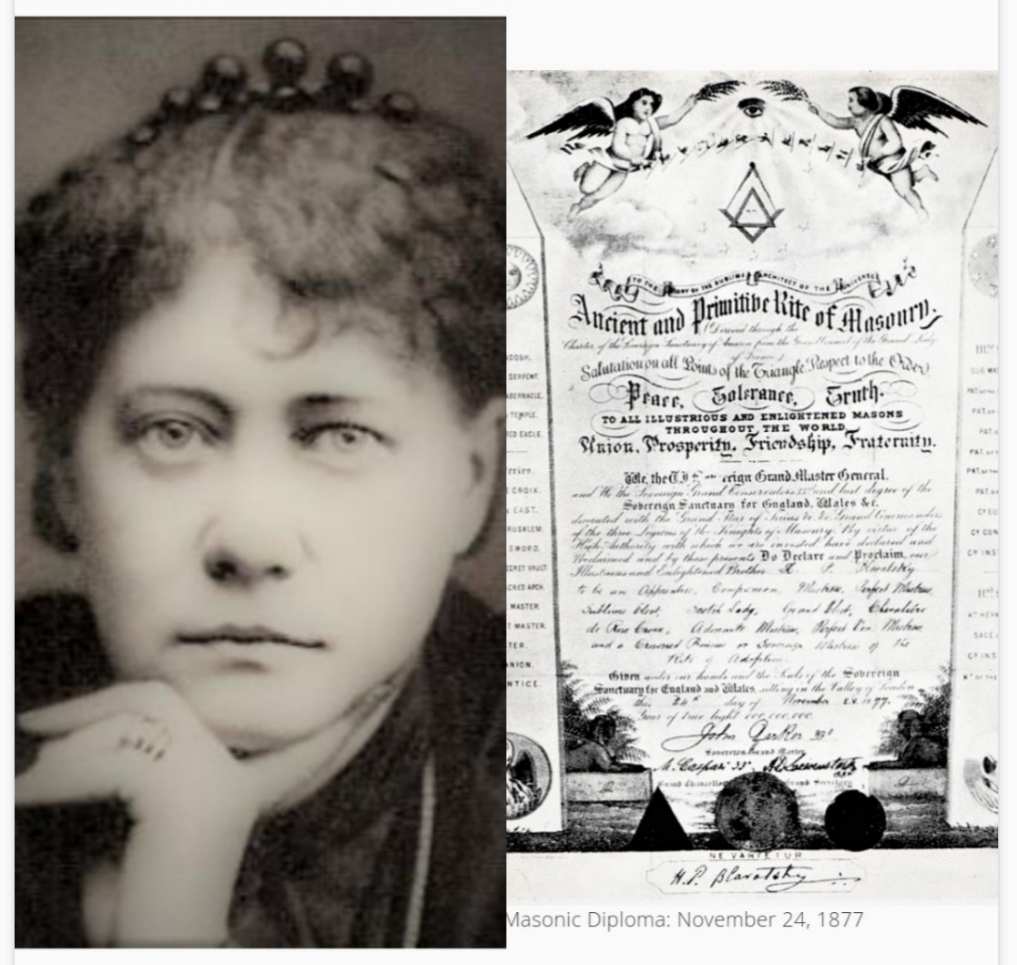 TO THE GLORY OF THE SUBLIME ARCHITECT OF THE UNIVERSE
Ancient and Primitive Rite of Masonry.
(Derived through the
Charter of the Sovereign Sanctuary of America from the Grand Council of the Grand Lodge
of France)
Salutation on all Points of the Triangle. Respect to the Order
Peace, Tolerance, Truth.
TO ALL ILLUSTRIOUS AND ENLIGHTENED MASONS
THROUGHOUT THE WORLD
Union, Prosperity, Friendship, Fraternity.
We, the eign Grand Master General.
and We the Sovereign Grand Conservators 33° and last degree of the
Sovereign Sanctuary for England, Wales &c.
decorated with the Grand Star of Sirius &c &c Grand Commanders
of the three Legions of the Knights of Masonry, By virtue of the
High Authority with which we are invested have declared and
Proclaimed and by these presents Do Declare and Proclaim, our
Illustrious and Enlightened Brother H. P. Blavatsky
to be an Apprentice, Companion, Mistress, Perfect Mistress,
Sublime Elect, Scotch Lady, Grand Elect, Chevalière
de Rose Croix, Adonaite Mistress, Perfect Ven. Mistress
and a Crowned Princess of the
Rite of Adoption.
Given under our hands and the Seals of the Sovereign
Sanctuary for England and Wales, sitting in the Valley of London
this 24th day of November 1877.
Year of true light 000,000,000.
John Yarker 33°
Sovereign Grand Master
M. Caspari 33°
Grand Chancellor Grand Secretary
OSH.
SERPENT.
ABERNACLE.
TEMPLE.
RED EAGLE.
eries.
E CROIX.
EAST.
RUSALEM.
SWORD.
CRET VAULT.
CRED ARCH.
MASTER.
T MASTER.
TER.
ANION.
NTICE.
PAT. O
PAT. O
PAT. O
CP CON
CP INS
SAGE
CP INS
NE VARIETUR
H.P. Blavatsky
Masonic Diploma: November 24, 1877